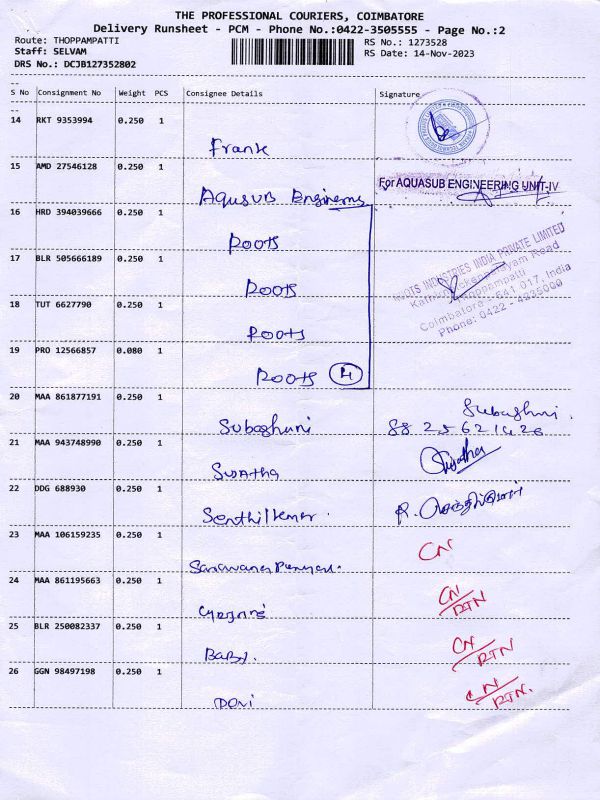 THE PROFESSIONAL COURIERS, COIMBATORE
Delivery Runsheet - PCM - Phone No.:0422-3505555 - Page No.:2
Route: THOPPAMPATTI RS No.: 1273528
Staff: SELVAM RS Date: 14-Nov-2023
DRS No.: DCJB127352802
S No Consignment No Weight PCS Consignee Details Signature
14 RKT 9353994 0.250 1
Frank
15 AMD 27546128 0.250 1
For AQUASUB ENGINEERING UNIT-IV
AquSUB Engineering
16 HRD 394039666 0.250 1
Roots
17 BLR 505666189 0.250 1
Roots
ROOTS INDUSTRIES INDIA PRIVATE LIMITED
Road
Thoppampatti
Coimbatore - 641 017, India
Phone: 0422 - 4335000
18 TUT 6627790 0.250 1
Roots
19 PRO 12566857 0.080 1
Roots 4
20 MAA 861877191 0.250 1
Subashuni Subashni.
88 25621426
21 MAA 943748990 0.250 1
Swatha Swatha
22 DDG 688930 0.250 1
Senthilkumar. R. செந்தில்குமார்
23 MAA 106159235 0.250 1
CN
24 MAA 861195663 0.250 1
CN/RTN
25 BLR 250082337 0.250 1
Baby. CN/RTN
26 GGN 98497198 0.250 1
Devi CN/RTN.